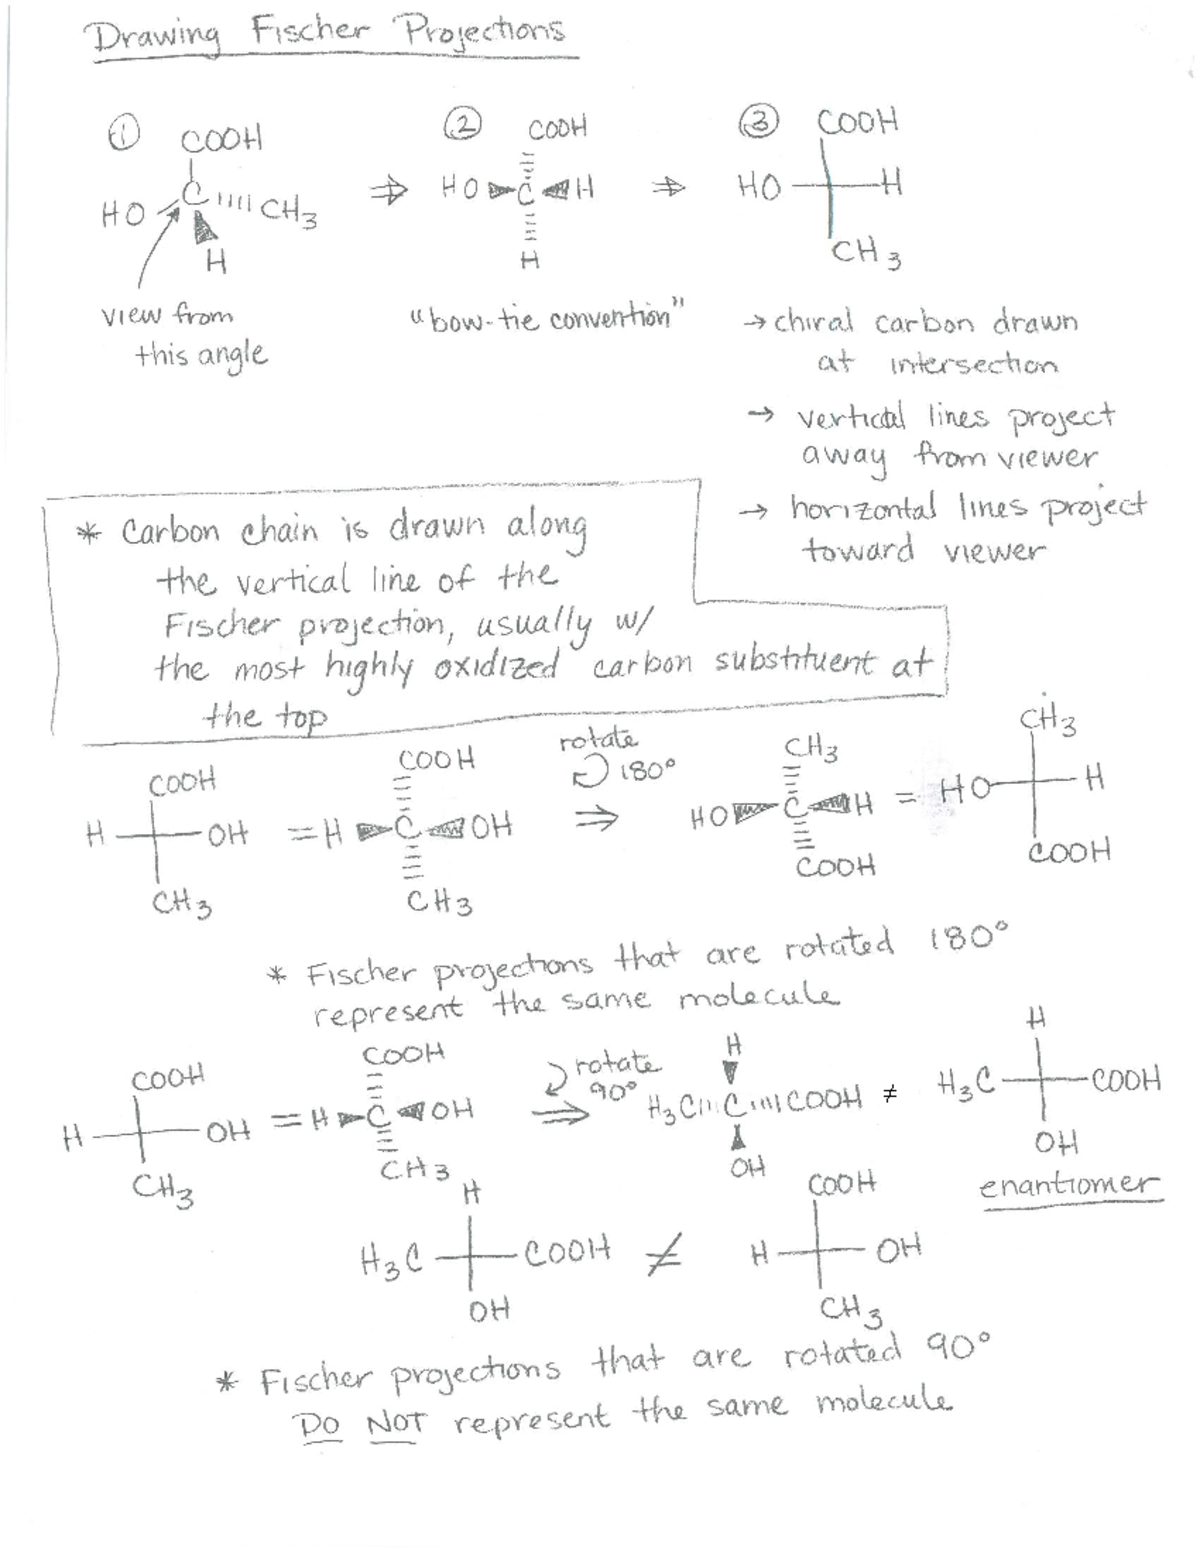 Drawing Fischer Projections
① COOH
HO C CH3
H
view from
this angle
⇒
② COOH
HO C H
H
"bow-tie convention"
⇒
③ COOH
HO H
CH3
→ chiral carbon drawn
at intersection
→ vertical lines project
away from viewer
→ horizontal lines project
toward viewer
* Carbon chain is drawn along
the vertical line of the
Fischer projection, usually w/
the most highly oxidized carbon substituent at
the top
COOH
H OH
CH3
=
COOH
H C OH
CH3
rotate
180°
⇒
CH3
HO C H
COOH
=
CH3
HO H
COOH
* Fischer projections that are rotated 180°
represent the same molecule
COOH
H OH
CH3
=
COOH
H C OH
CH3
rotate
90°
⇒
H
H3C C COOH
OH
≠
H
H3C COOH
OH
enantiomer
H
H3C COOH
OH
≠
COOH
H OH
CH3
* Fischer projections that are rotated 90°
DO NOT represent the same molecule